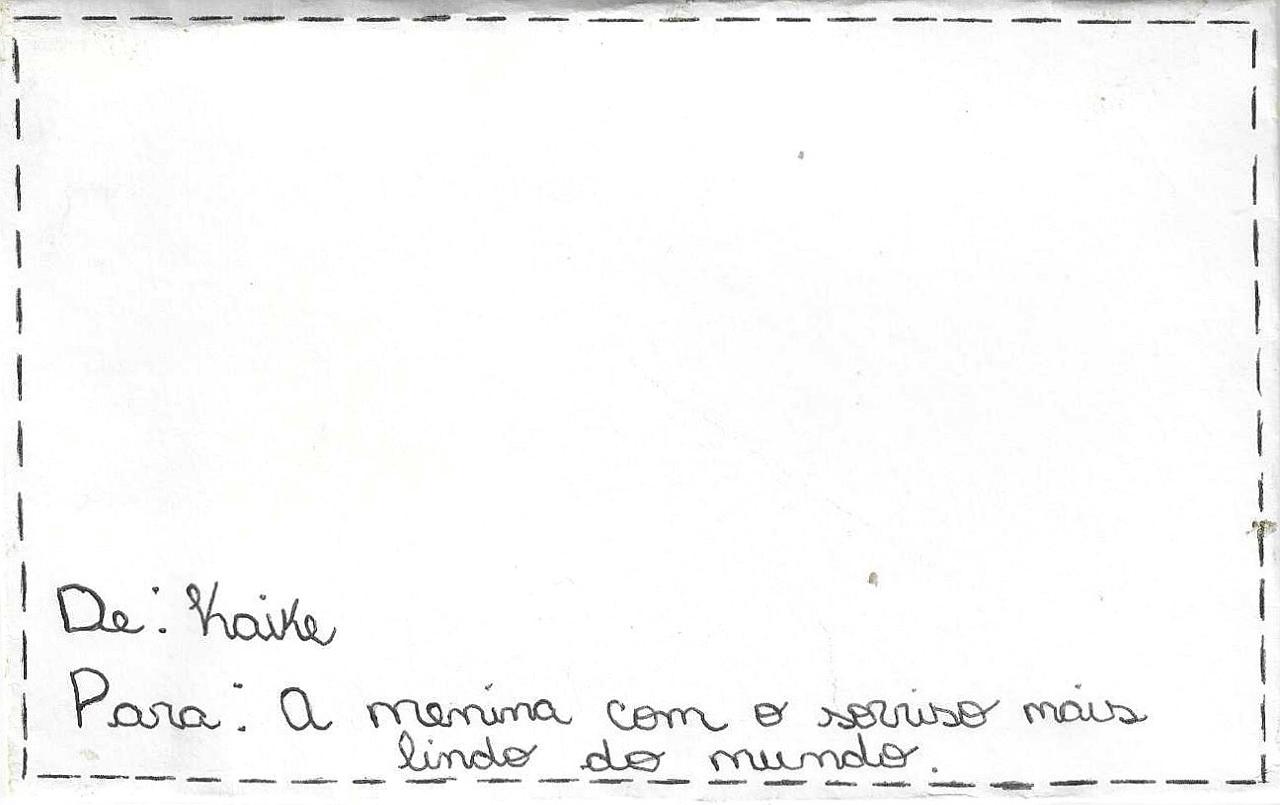 De: Kaike
Para: A menina com o sorriso mais
lindo do mundo.